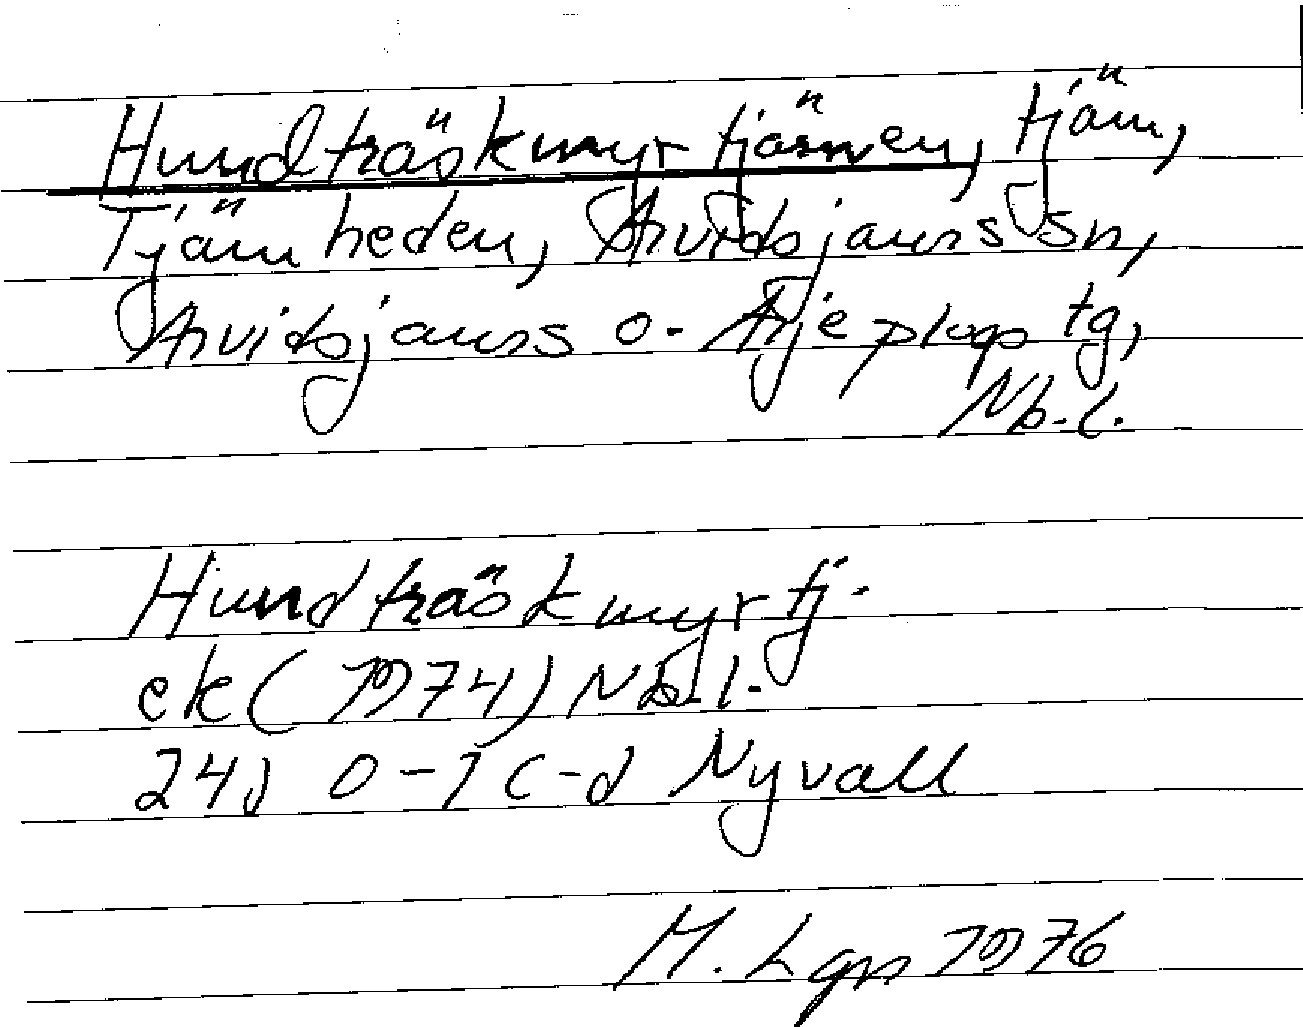 Hundträskmyrtjärnen, tjärn,
Tjärnheden, Arvidsjaurs sn,
Arvidsjaurs o. Arjeplogs tg,
Nb. l.
Hundträskmyrtj.
ek (1974) Nb. l.
24J 0-1 c-d Nyvall
M. Lgn 1976